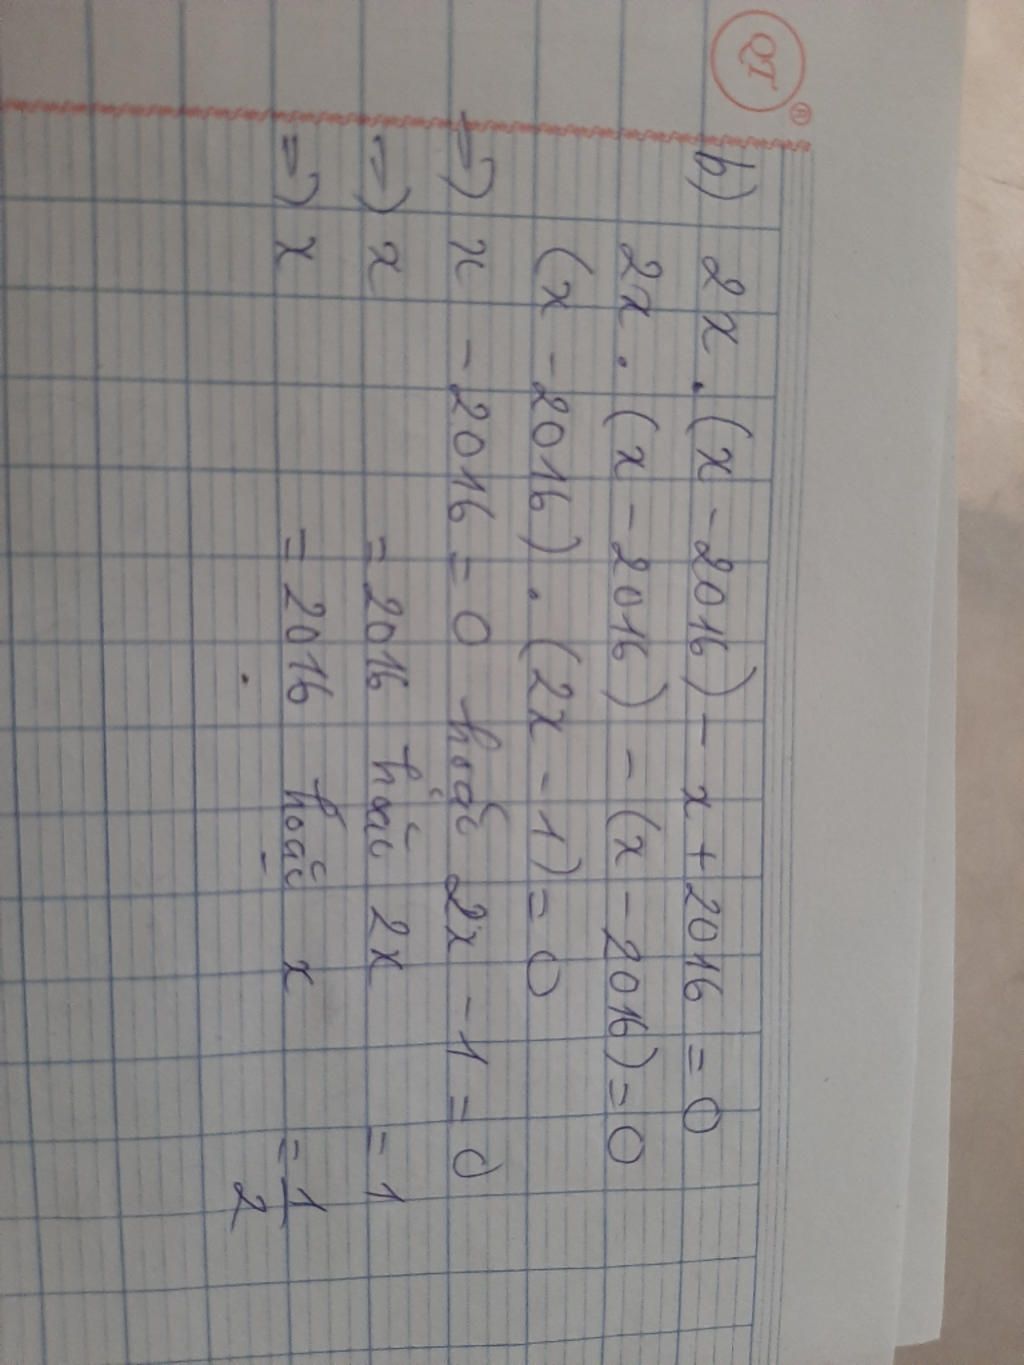 QT ®
b) 2x . (x - 2016) - x + 2016 = 0
2x . (x - 2016) - (x - 2016) = 0
(x - 2016) . (2x - 1) = 0
=) x - 2016 = 0 hoặc 2x - 1 = 0
=) x = 2016 hoặc 2x = 1
=) x = 2016 hoặc x = 1/2